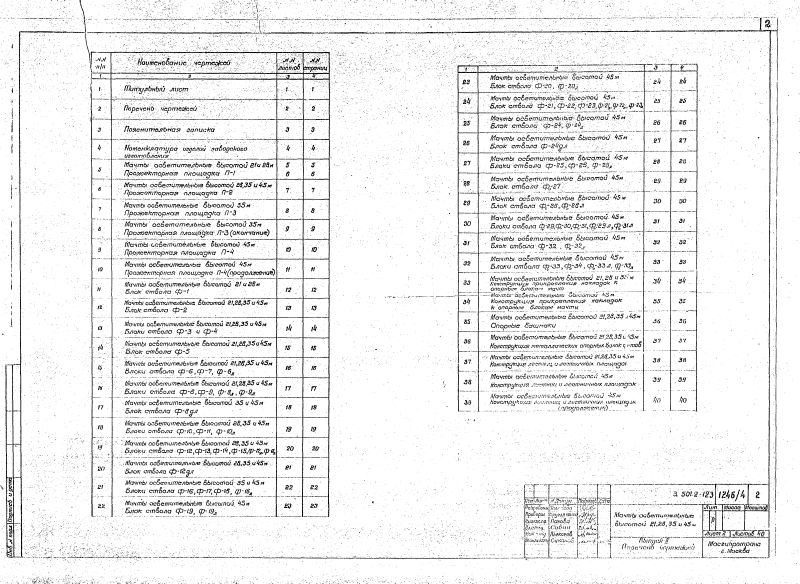 2
№№ п/п Наименование чертежей №№ листов №№ страниц
1 2 3 4
1 Титульный лист 1 1
2 Перечень чертежей 2 2
3 Пояснительная записка 3 3
4 Номенклатура изделий заводского 4 4
изготовления
5 Мачты осветительные высотой 21 и 28м 5 5
Прожекторная площадка П-1 6 6
6 Мачты осветительные высотой 28,35 и 45м
Прожекторная площадка П-2 7 7
7 Мачты осветительные высотой 35м
Прожекторная площадка П-3 8 8
8 Мачты осветительные высотой 35м
Прожекторная площадка П-3 (окончание) 9 9
9 Мачты осветительные высотой 45м
Прожекторная площадка П-4 10 10
10 Мачты осветительные высотой 45м
Прожекторная площадка П-4 (продолжение) 11 11
11 Мачты осветительные высотой 21 и 28м
Блок ствола Ф-1 12 12
12 Мачты осветительные высотой 21,28,35 и 45м
Блок ствола Ф-2 13 13
13 Мачты осветительные высотой 21,28,35 и 45м
Блоки ствола Ф-3 и Ф-4 14 14
14 Мачты осветительные высотой 21,28,35 и 45м
Блок ствола Ф-5 15 15
15 Мачты осветительные высотой 21,28,35 и 45м
Блоки ствола Ф-6, Ф-7, 16 16
16 Мачты осветительные высотой 21,28,35 и 45м
Блоки ствола Ф-8, Ф-9, 17 17
17 Мачты осветительные высотой 35 и 45м
Блок ствола 18 18
18 Мачты осветительные высотой 28,35 и 45м
Блоки ствола Ф-10, Ф-11, 19 19
19 Мачты осветительные высотой 28,35 и 45м
Блоки ствола Ф-12, Ф-13, Ф-14, Ф-15, 20 20
20 Мачты осветительные высотой 28,35 и 45м
Блок ствола 21 21
21 Мачты осветительные высотой 35 и 45м
Блоки ствола Ф-16, Ф-17, Ф-18, 22 22
22 Мачты осветительные высотой 45м
Блок ствола Ф-19, 23 23
1 2 3 4
23 Мачты осветительные высотой 45м 24 24
Блок ствола Ф-20,
24 Мачты осветительные высотой 45м 25 25
Блок ствола Ф-21, Ф-22, Ф-23,
25 Мачты осветительные высотой 45м 26 26
Блок ствола Ф-24,
26 Мачты осветительные высотой 45м 27 27
Блок ствола
27 Мачты осветительные высотой 45м 28 28
Блоки ствола Ф-25, Ф-26,
28 Мачты осветительные высотой 45м 29 29
Блок ствола Ф-27
29 Мачты осветительные высотой 45м 30 30
Блок ствола Ф-28,
30 Мачты осветительные высотой 45м 31 31
Блоки ствола Ф-29, Ф-30, Ф-31,
31 Мачты осветительные высотой 45м 32 32
Блок ствола Ф-32,
32 Мачты осветительные высотой 45м 33 33
Блоки ствола Ф-33, Ф-34,
33 Мачты осветительные высотой 21,28 и 35м 34 34
Конструкция прикрепления накладок
к опорным блокам мачт
34 Мачты осветительные высотой 45м 35 35
Конструкция прикрепления накладок
к опорным блокам мачты
35 Мачты осветительные высотой 21,28,35 и 45м 36 36
Опорные башмаки
36 Мачты осветительные высотой 21,28,35 и 45м 37 37
Конструкция металлических опорных
37 Мачты осветительные высотой 21,28,35 и 45м 38 38
Конструкция лестниц и лестничных площадок
38 Мачты осветительные высотой 45м 39 39
Конструкция лестниц и лестничных площадок
39 Мачты осветительные высотой 45м 40 40
Конструкция лестниц и лестничных площадок
(продолжение)
3.501.2-123 1246/4 2
Мачты осветительные
высотой 21,28,35 и 45м
Лит Масса Масштаб
Р
Лист 2 Листов 40
Выпуск II
Перечень чертежей
Мосгипротранс
г. Москва